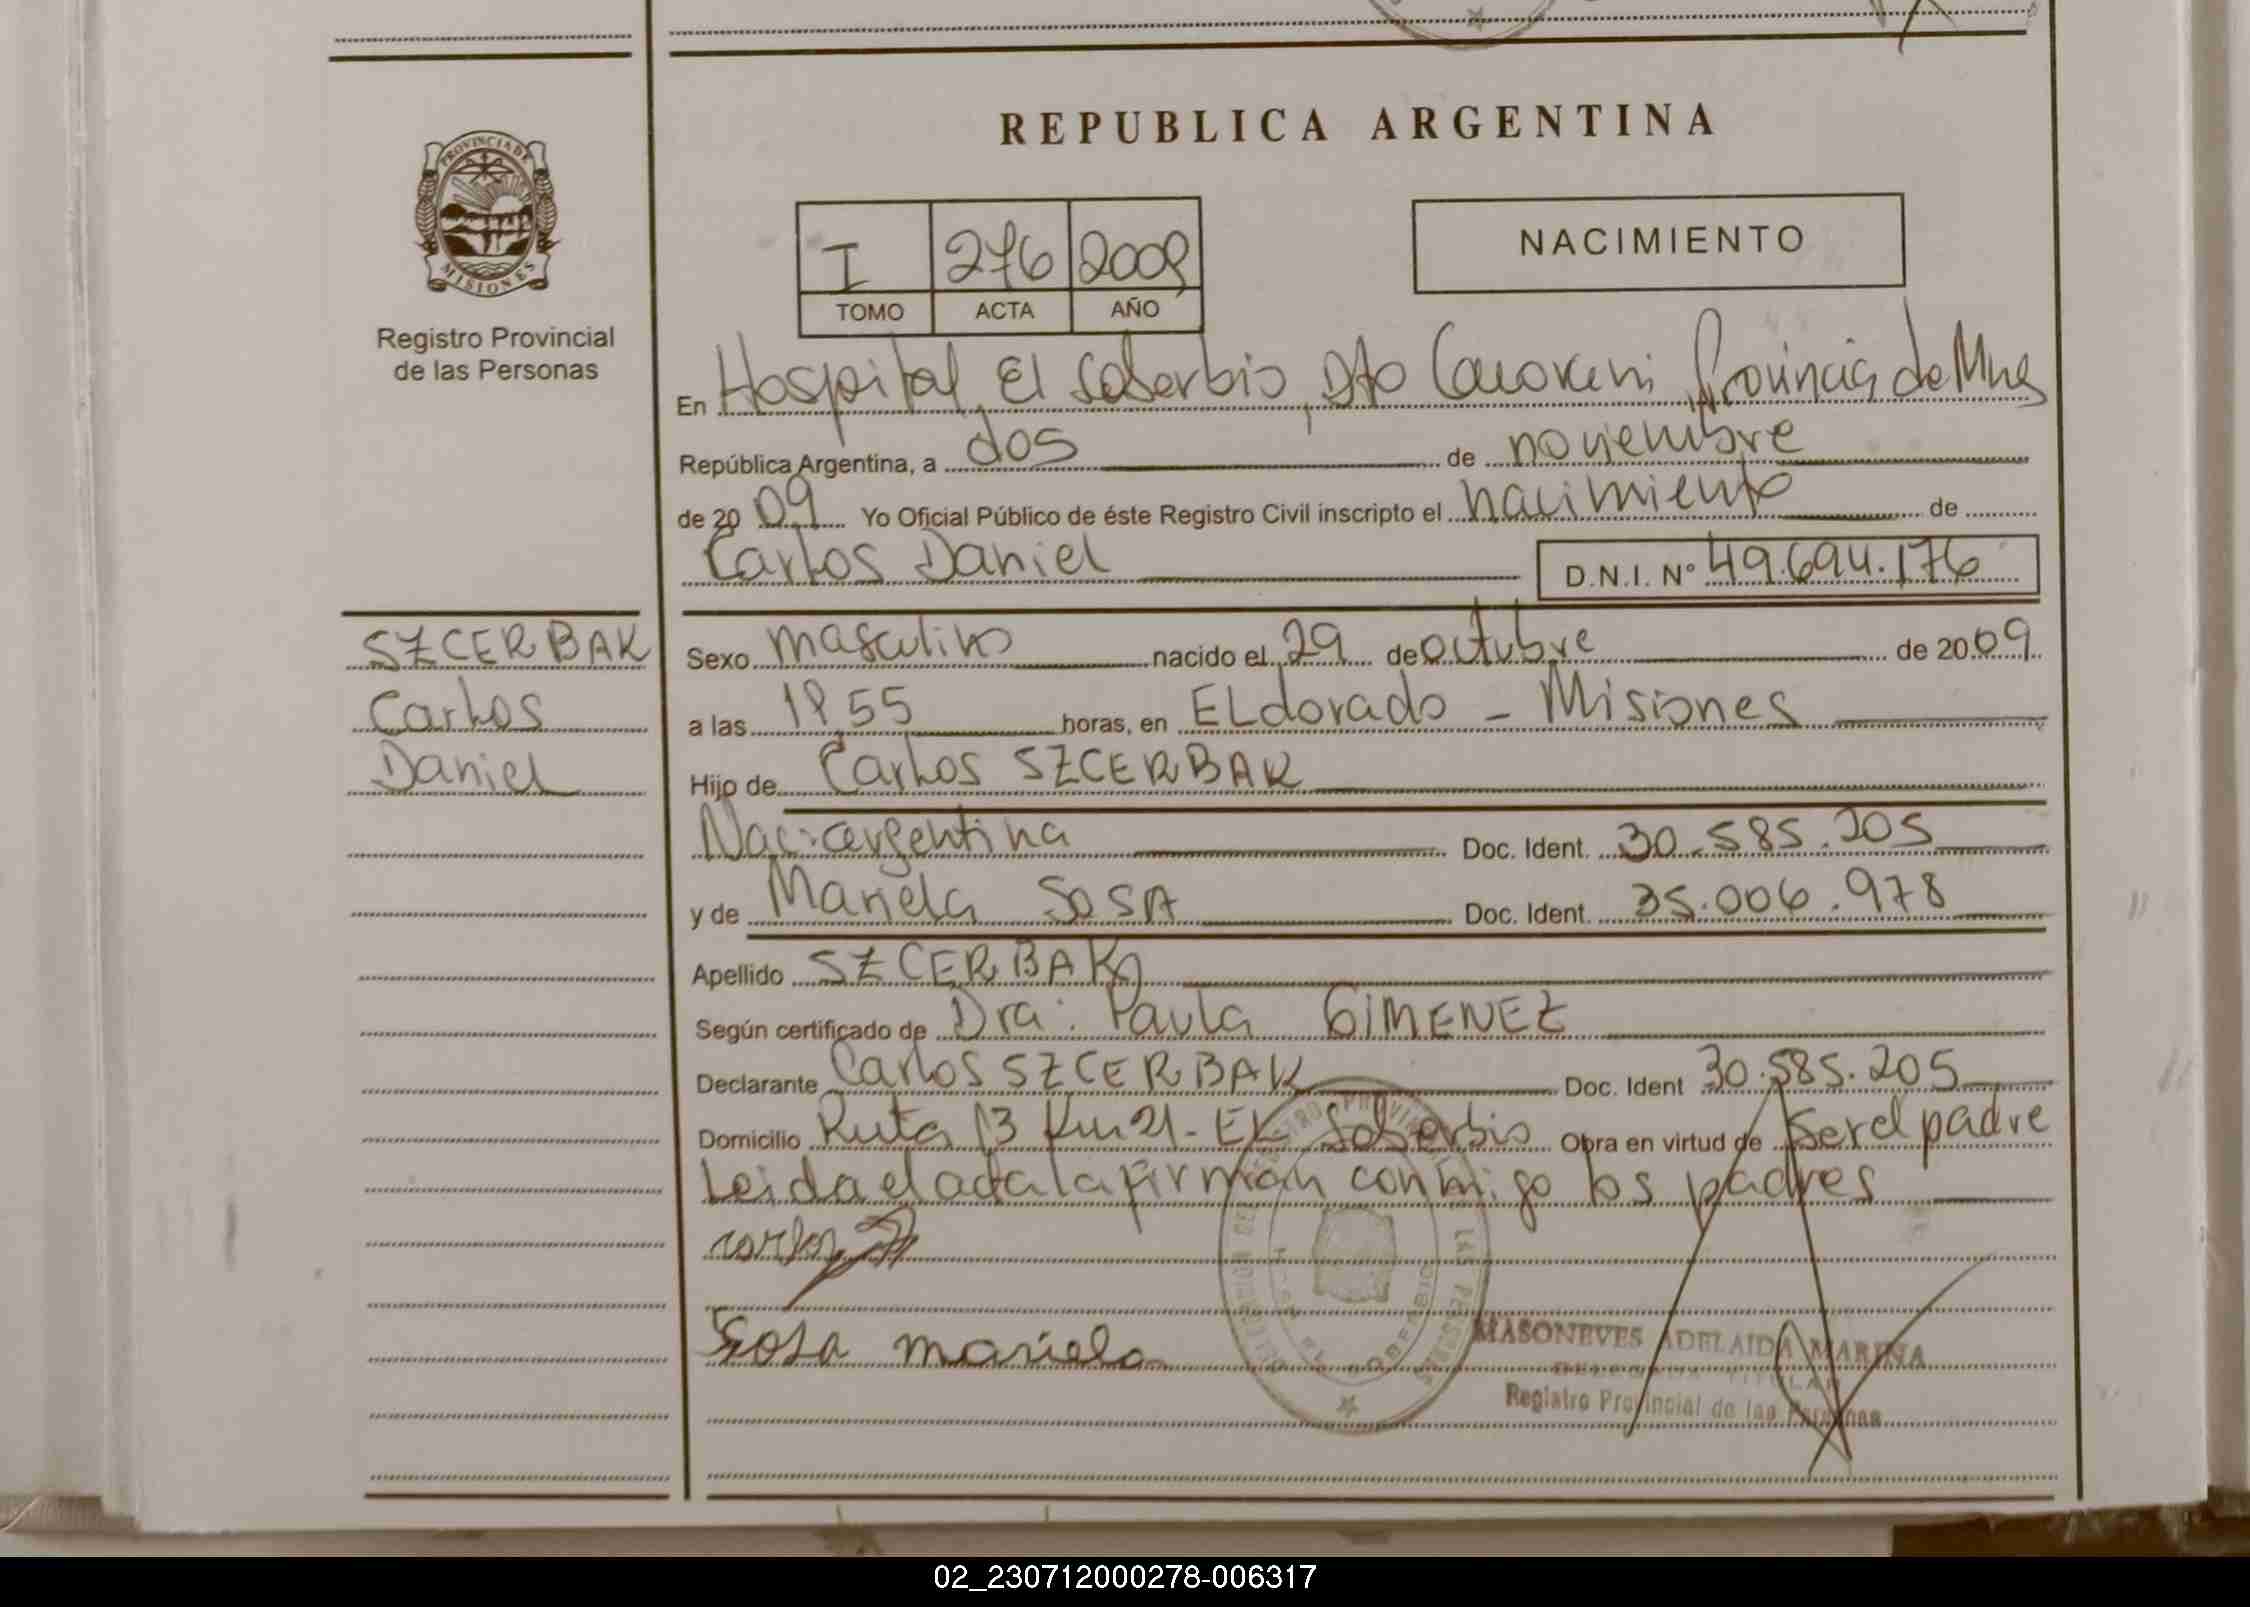 REPUBLICA ARGENTINA
PROVINCIA DE
MISIONES
Registro Provincial
de las Personas
I 276 2009
TOMO ACTA AÑO
NACIMIENTO
En Hospital El Soberbio, Dto Guarani Provincia de Mnes
República Argentina, a dos de noviembre
de 2009 Yo Oficial Público de éste Registro Civil inscripto el nacimiento de
Carlos Daniel D.N.I. Nº 49.694.176
SZCERBAK
Carlos
Daniel
Sexo masculino nacido el 29 de octubre de 2009
a las 18,55 horas, en ELdorado - Misiones
Hijo de Carlos SZCERBAK
Nac: argentina Doc. Ident. 30.585.205
y de Mariela SOSA Doc. Ident. 35.006.978
Apellido SZCERBAK
Según certificado de Dra: Paula GIMENEZ
Declarante Carlos SZCERBAK Doc. Ident 30.585.205
Domicilio Ruta 13 Km 21 - EL Soberbio Obra en virtud de ser el padre
Leida el acta la firman conmigo los padres
carlos
Sosa mariela
MASONEVES ADELAIDA MARINA
DELEGADA TITULAR
Registro Provincial de las Personas
02_230712000278-006317